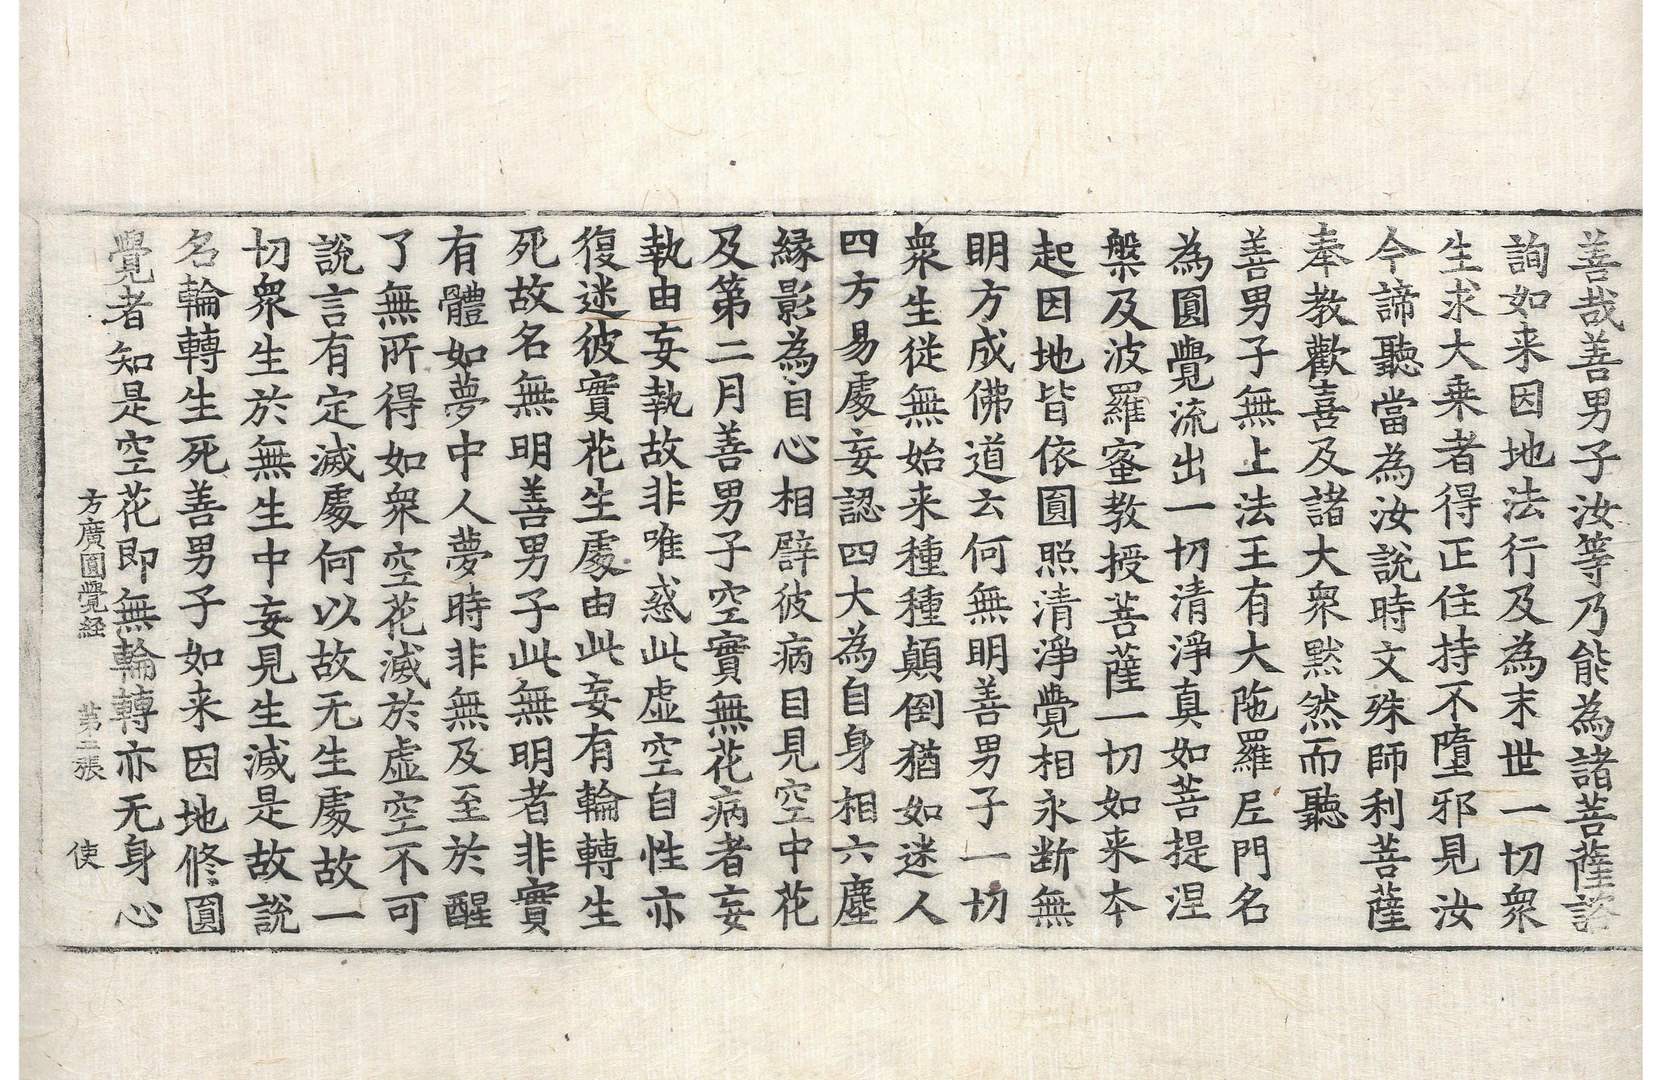 善哉善男子汝等乃能為諸菩薩諮
詢如来因地法行及為末世一切衆
生求大乗者得正住持不墮邪見汝
今諦聽當為汝說時文殊師利菩薩
奉教歡喜及諸大衆默然而聽
善男子無上法王有大陁羅尼門名
為圓覺流出一切清淨真如菩提涅
槃及波羅蜜教授菩薩一切如来本
起因地皆依圓照清淨覺相永断無
明方成佛道云何無明善男子一切
衆生從無始来種種顛倒猶如迷人
四方易處妄認四大為自身相六塵
緣影為自心相譬彼病目見空中花
及第二月善男子空實無花病者妄
執由妄執故非唯惑此虚空自性亦
復迷彼實花生處由此妄有輪轉生
死故名無明善男子此無明者非實
有體如夢中人夢時非無及至於醒
了無所得如衆空花滅於虚空不可
說言有定滅處何以故无生處故一
切衆生於無生中妄見生滅是故說
名輪轉生死善男子如来因地修圓
覺者知是空花即無輪轉亦无身心
方廣圓覺経 第二張 使